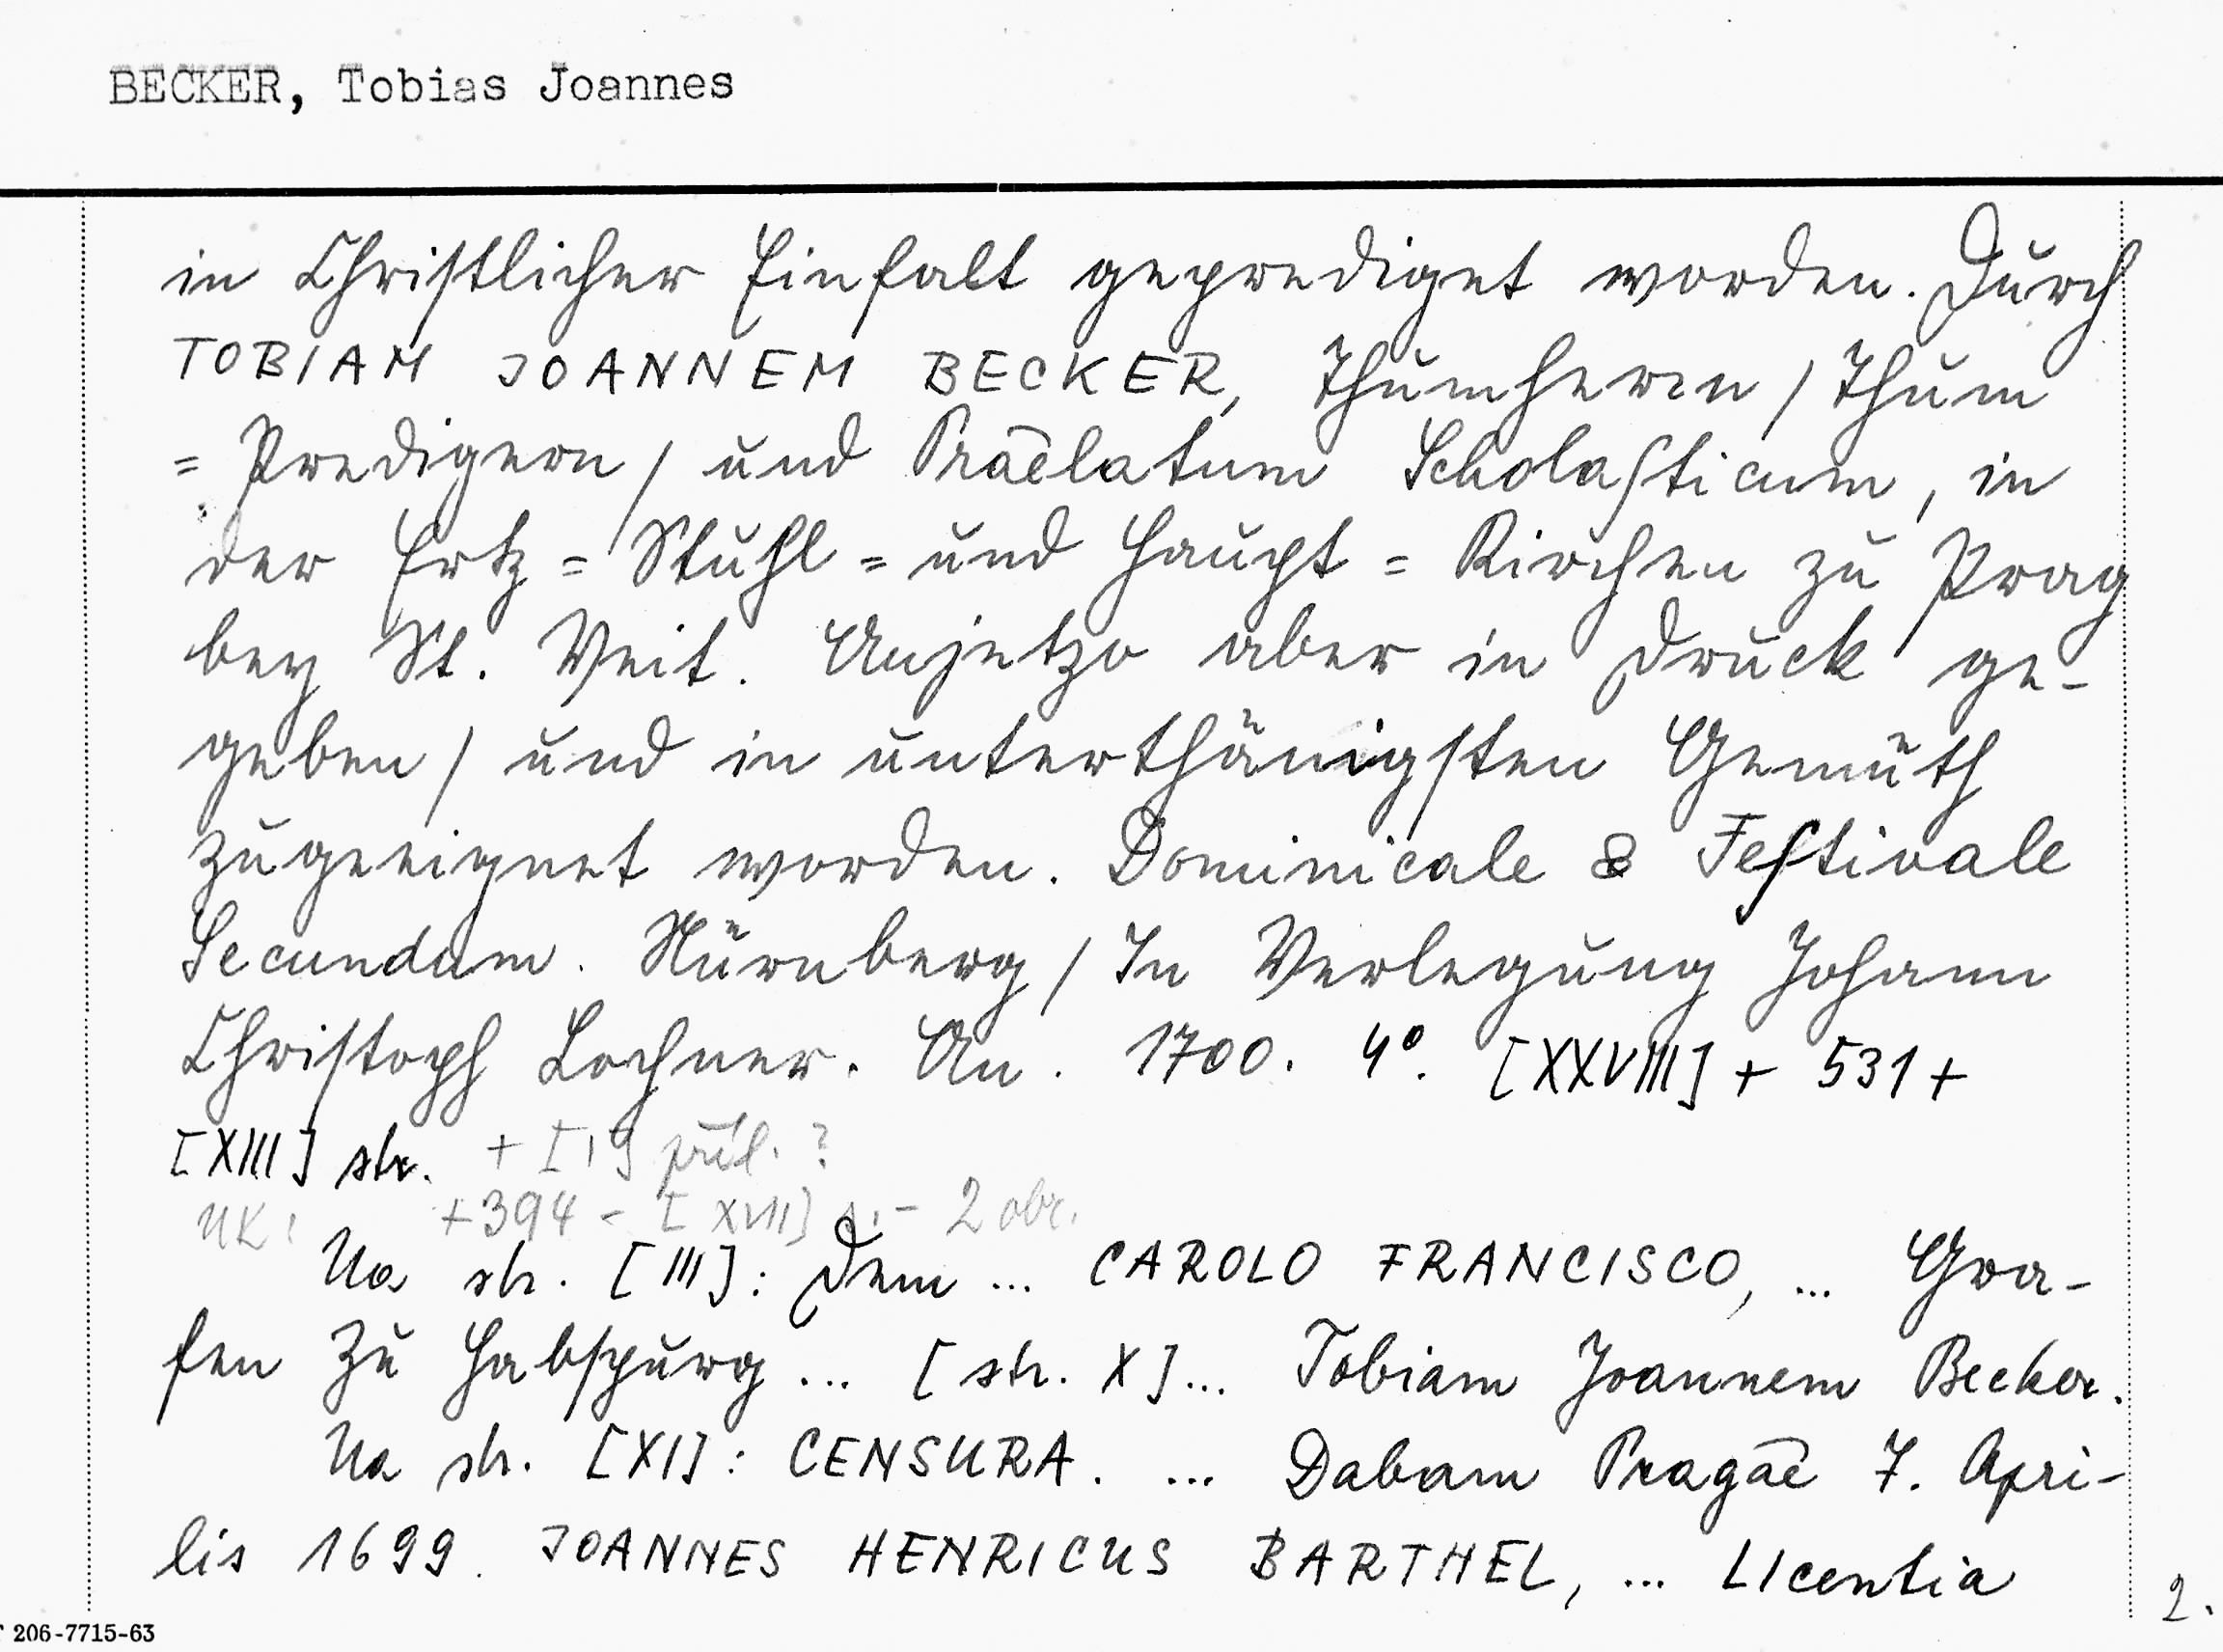 BECKER, Tobias Joannes
in Christlicher Einfalt geprediget worden. Durch
TOBIAM JOANNEM BECKER, Thumherrn / Thum
= Predigern / und Praelatum Scholaſticum, in
der Ertz = Stuhl = und Haupt = Kirchen zu Prag
bey St. Veit. Anjetzo aber in Druck ge-
geben / und in unterthänigsten Gemüth
zugeeignet worden. Dominicale & Feſtivale
Secundum. Nürnberg / In Verlegung Johann
Christoph Lochner. An. 1700. 4°. [XXVIII] + 531 +
[XIII] str. + [1] příl. ?
UK: +394 - [XVII] s. - 2 obr.
Na str. [III]: Dem ... CAROLO FRANCISCO, ... Gra-
fen Zu Habspurg ... [str. X] ... Tobiam Joannem Becker.
Na str. [XI]: CENSURA. ... Dabam Pragae 7. Apri-
lis 1699. JOANNES HENRICUS BARTHEL, ... LIcentia
2.
206-7715-63